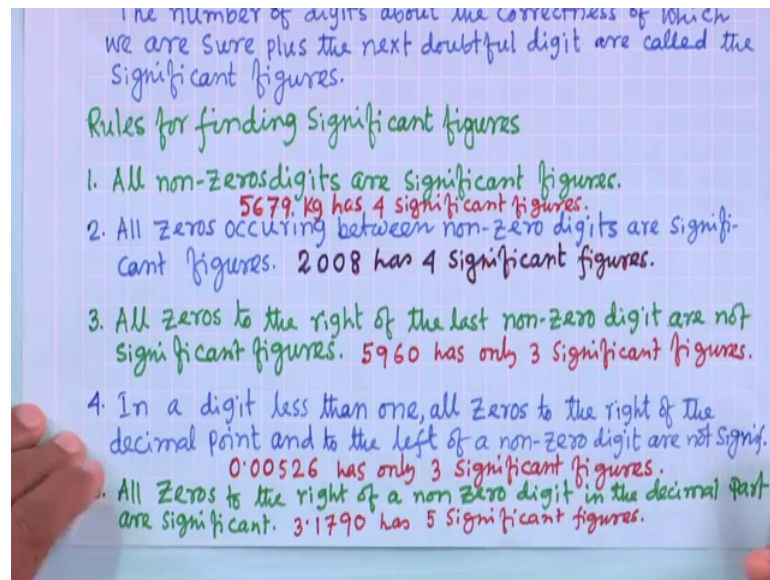 The number of digits about the correctness of which
we are sure plus the next doubtful digit are called the
significant figures.
Rules for finding Significant figures
1. All non-zerosdigits are significant figures.
5679. Kg has 4 significant figures.
2. All zeros occuring between non-zero digits are signifi-
cant figures. 2008 has 4 significant figures.
3. All zeros to the right of the last non-zero digit are not
significant figures. 5960 has only 3 significant figures.
4. In a digit less than one, all zeros to the right of the
decimal point and to the left of a non-zero digit are not signif.
0.00526 has only 3 significant figures.
. All zeros to the right of a non zero digit in the decimal part
are significant. 3.1790 has 5 significant figures.